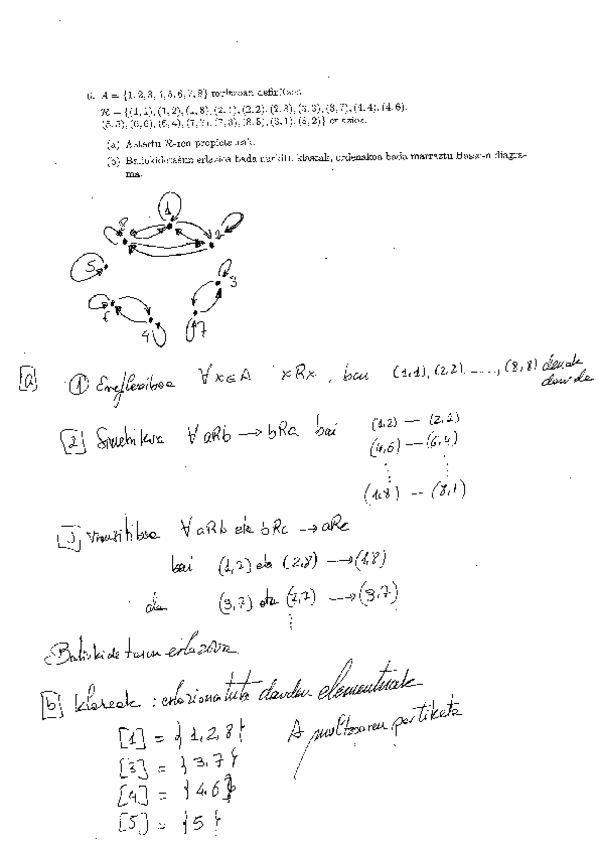 6. A = {1, 2, 3, 4, 5, 6, 7, 8} multzoan definituriko
R = {(1, 1), (1, 2), (1, 8), (2, 1), (2, 2), (2, 8), (3, 3), (3, 7), (4, 4), (4, 6),
(5, 5), (6, 6), (6, 4), (7, 7), (7, 3), (8, 8), (8, 1), (8, 2)} erlazioa.
(a) Aztertu R-ren propietateak.
(b) Baliokidetasun erlazioa bada aurkitu klaseak, ordenakoa bada marraztu Hasse-n diagra-
ma.
1
8 2
5
3
6
4 7
a ① Erreflexiboa ∀x∈A xRx, bai (1,1), (2,2), ...., (8,8) denak
daude
2 Simetrikoa ∀ aRb → bRa bai (1,2) — (2,2)
(4,6) — (6,4)
(1,8) -- (8,1)
3 Trantsitiboa ∀ aRb eta bRc → aRc
bai (1,2) eta (2,8) → (1,8)
(3,7) eta (7,7) → (3,7)
Baliokidetasun erlazioa
b Klaseak : erlazionatuta dauden elementuak
[1] = {1, 2, 8} A multzoaren partiketa
[3] = {3, 7}
[4] = {4, 6}
[5] = {5}